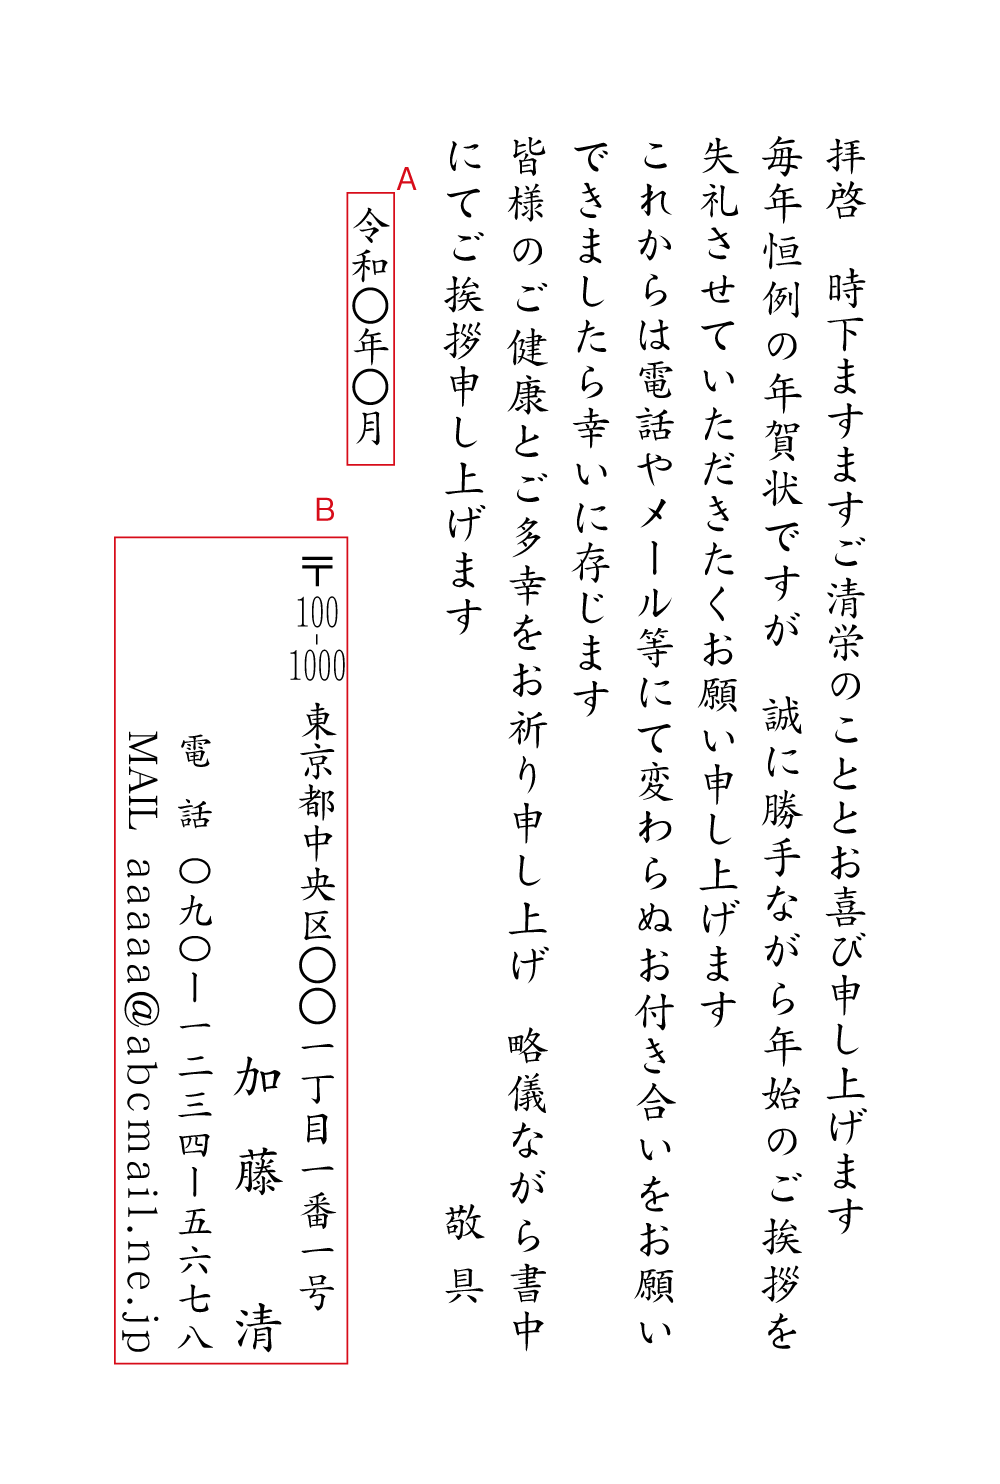 拝啓　時下ますますご清栄のこととお喜び申し上げます
毎年恒例の年賀状ですが　誠に勝手ながら年始のご挨拶を
失礼させていただきたくお願い申し上げます
これからは電話やメール等にて変わらぬお付き合いをお願い
できましたら幸いに存じます
皆様のご健康とご多幸をお祈り申し上げ　略儀ながら書中
にてご挨拶申し上げます
敬具
A
令和〇年〇月
B
〒100-1000 東京都中央区〇〇一丁目一番一号
加藤　清
電話 〇九〇ー一二三四ー五六七八
MAIL aaaaa@abcmail.ne.jp